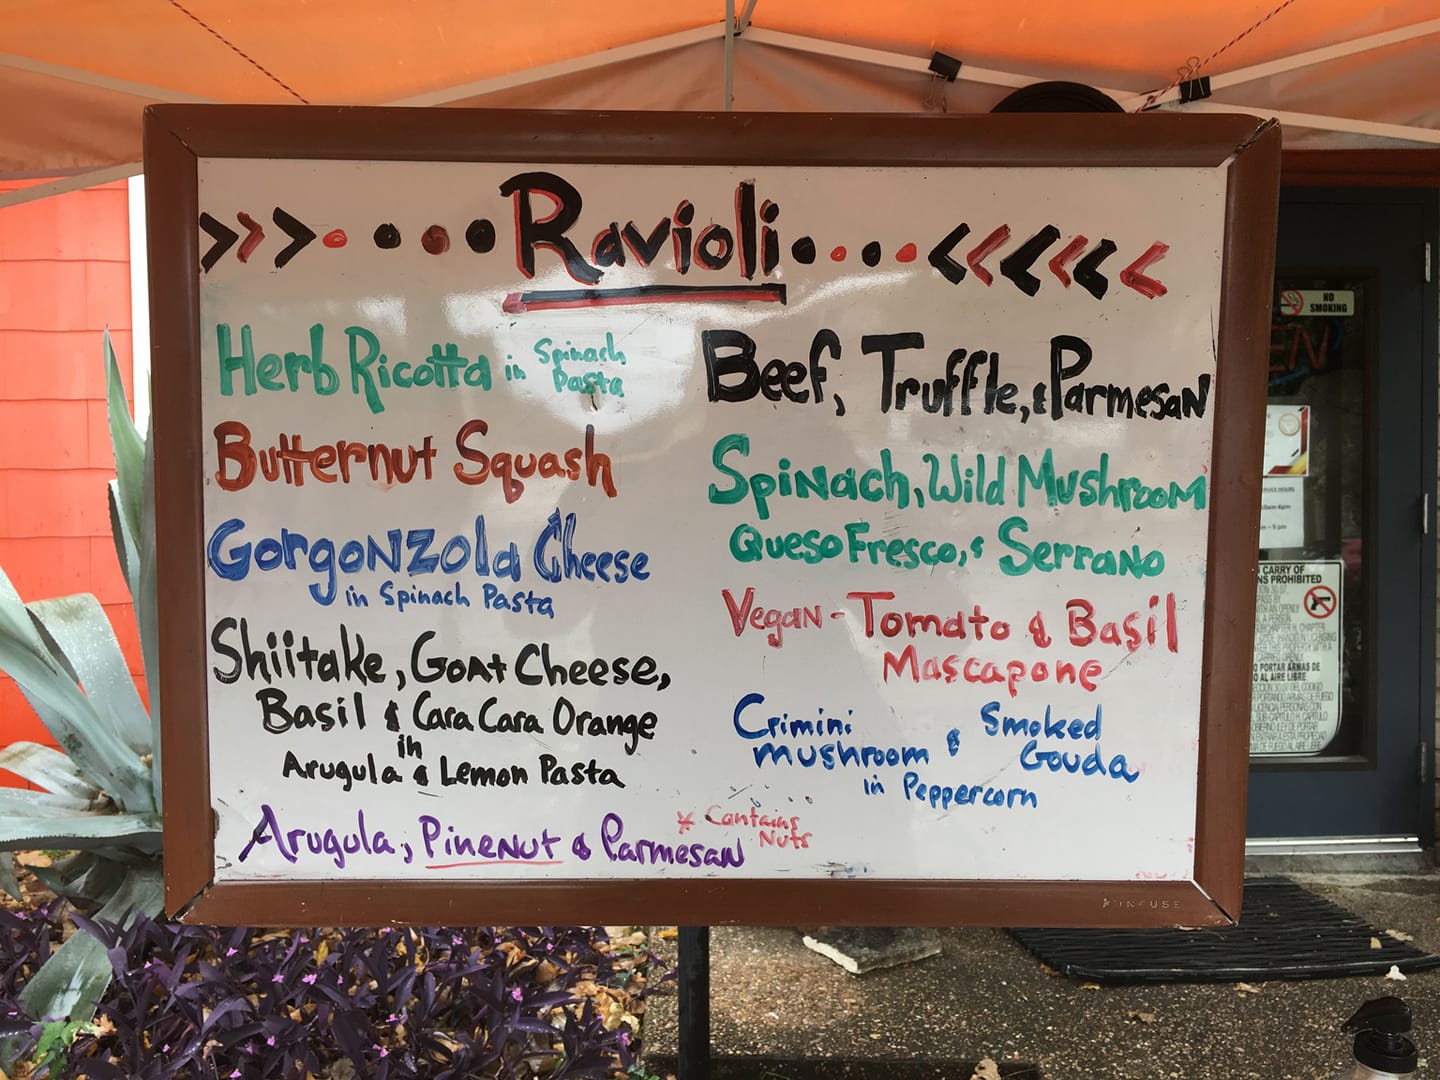 Ravioli
Herb Ricotta in Spinach Pasta
Butternut Squash
Gorgonzola Cheese
in Spinach Pasta
Shiitake, Goat Cheese,
Basil & Cara Cara Orange
in
Arugula & Lemon Pasta
Arugula, Pinenut & Parmesan
* Contains
Nuts
Beef, Truffle, & Parmesan
Spinach, Wild Mushroom
Queso Fresco, & Serrano
Vegan - Tomato & Basil
Mascapone
Crimini
mushroom & Smoked
Gouda
in Peppercorn
INFUSE
NO
SMOKING
CARRY OF
NS PROHIBITED
PORTAR ARMAS DE
AL AIRE LIBRE